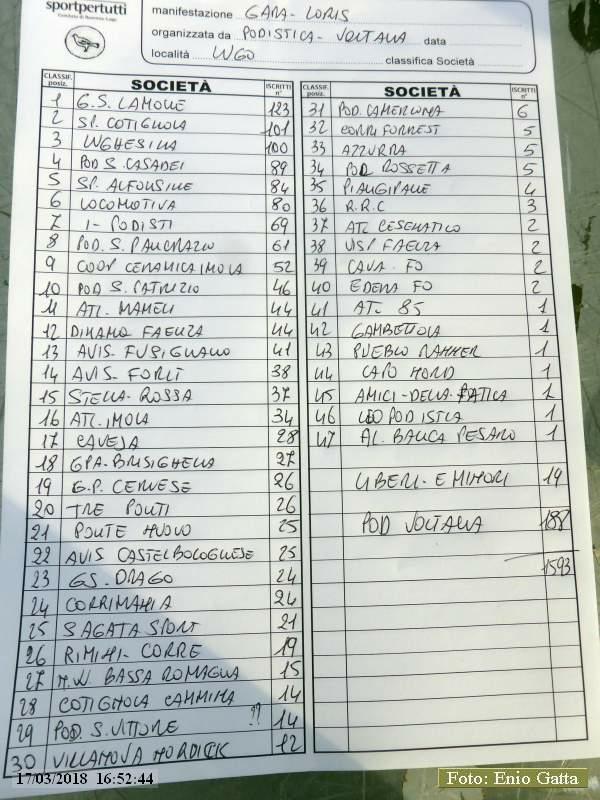 sportpertutti
manifestazione GARA - LORIS
organizzata da PODISTICA - VOLTANA data
località LUGO classifica Società
CLASSIF. posiz. SOCIETÀ ISCRITTI n°
1 G.S. LAMONE 123
2 SP. COTIGNOLA 101
3 LUGHESINA 100
4 POD S. CASADEI 89
5 SP. ALFONSINE 84
6 LOCOMOTIVA 80
7 I - PODISTI 69
8 POD. S. PANCRAZIO 61
9 COOP CERAMICA IMOLA 52
10 POD S. PATRIZIO 46
11 ATL. MAMELI 44
12 DINAMO FAENZA 44
13 AVIS - FUSIGNANO 41
14 AVIS - FORLÌ 38
15 STELLA - ROSSA 37
16 ATL. IMOLA 34
17 CAVEJA 28
18 GPA - BRISIGHELLA 27
19 G.P. CERVESE 26
20 TRE PONTI 26
21 PONTE NUOVO 25
22 AVIS CASTELBOLOGNESE 25
23 GS. DRAGO 24
24 CORRIMANIA 24
25 S AGATA SPORT 21
26 RIMINI - CORRE 19
27 N.W. BASSA ROMAGNA 15
28 COTIGNOLA CAMMINA 14
29 POD. S. VITTORE ?? 14
30 VILLANOVA NORDICK 12
CLASSIF. posiz. SOCIETÀ ISCRITTI n°
31 POD. CAMERLONA 6
32 CORRI FORREST 5
33 AZZURRA 5
34 POD. ROSSETTA 5
35 PIANGIPANE 4
36 R.R.C 3
37 ATL CESENATICO 2
38 UISP FAENZA 2
39 CAVA - FO 2
40 EDERA FO 2
41 ATL 85 1
42 GAMBETTOLA 1
43 PUEBLO RANNER 1
44 CAPO NORD 1
45 AMICI - DELLA - FATICA 1
46 LEOPODISTICA 1
47 AL. BANCA PESARO 1
LIBERI - E MINORI 19
POD VOLTANA 188
1593
17/03/2018 16:52:44
Foto: Enio Gatta